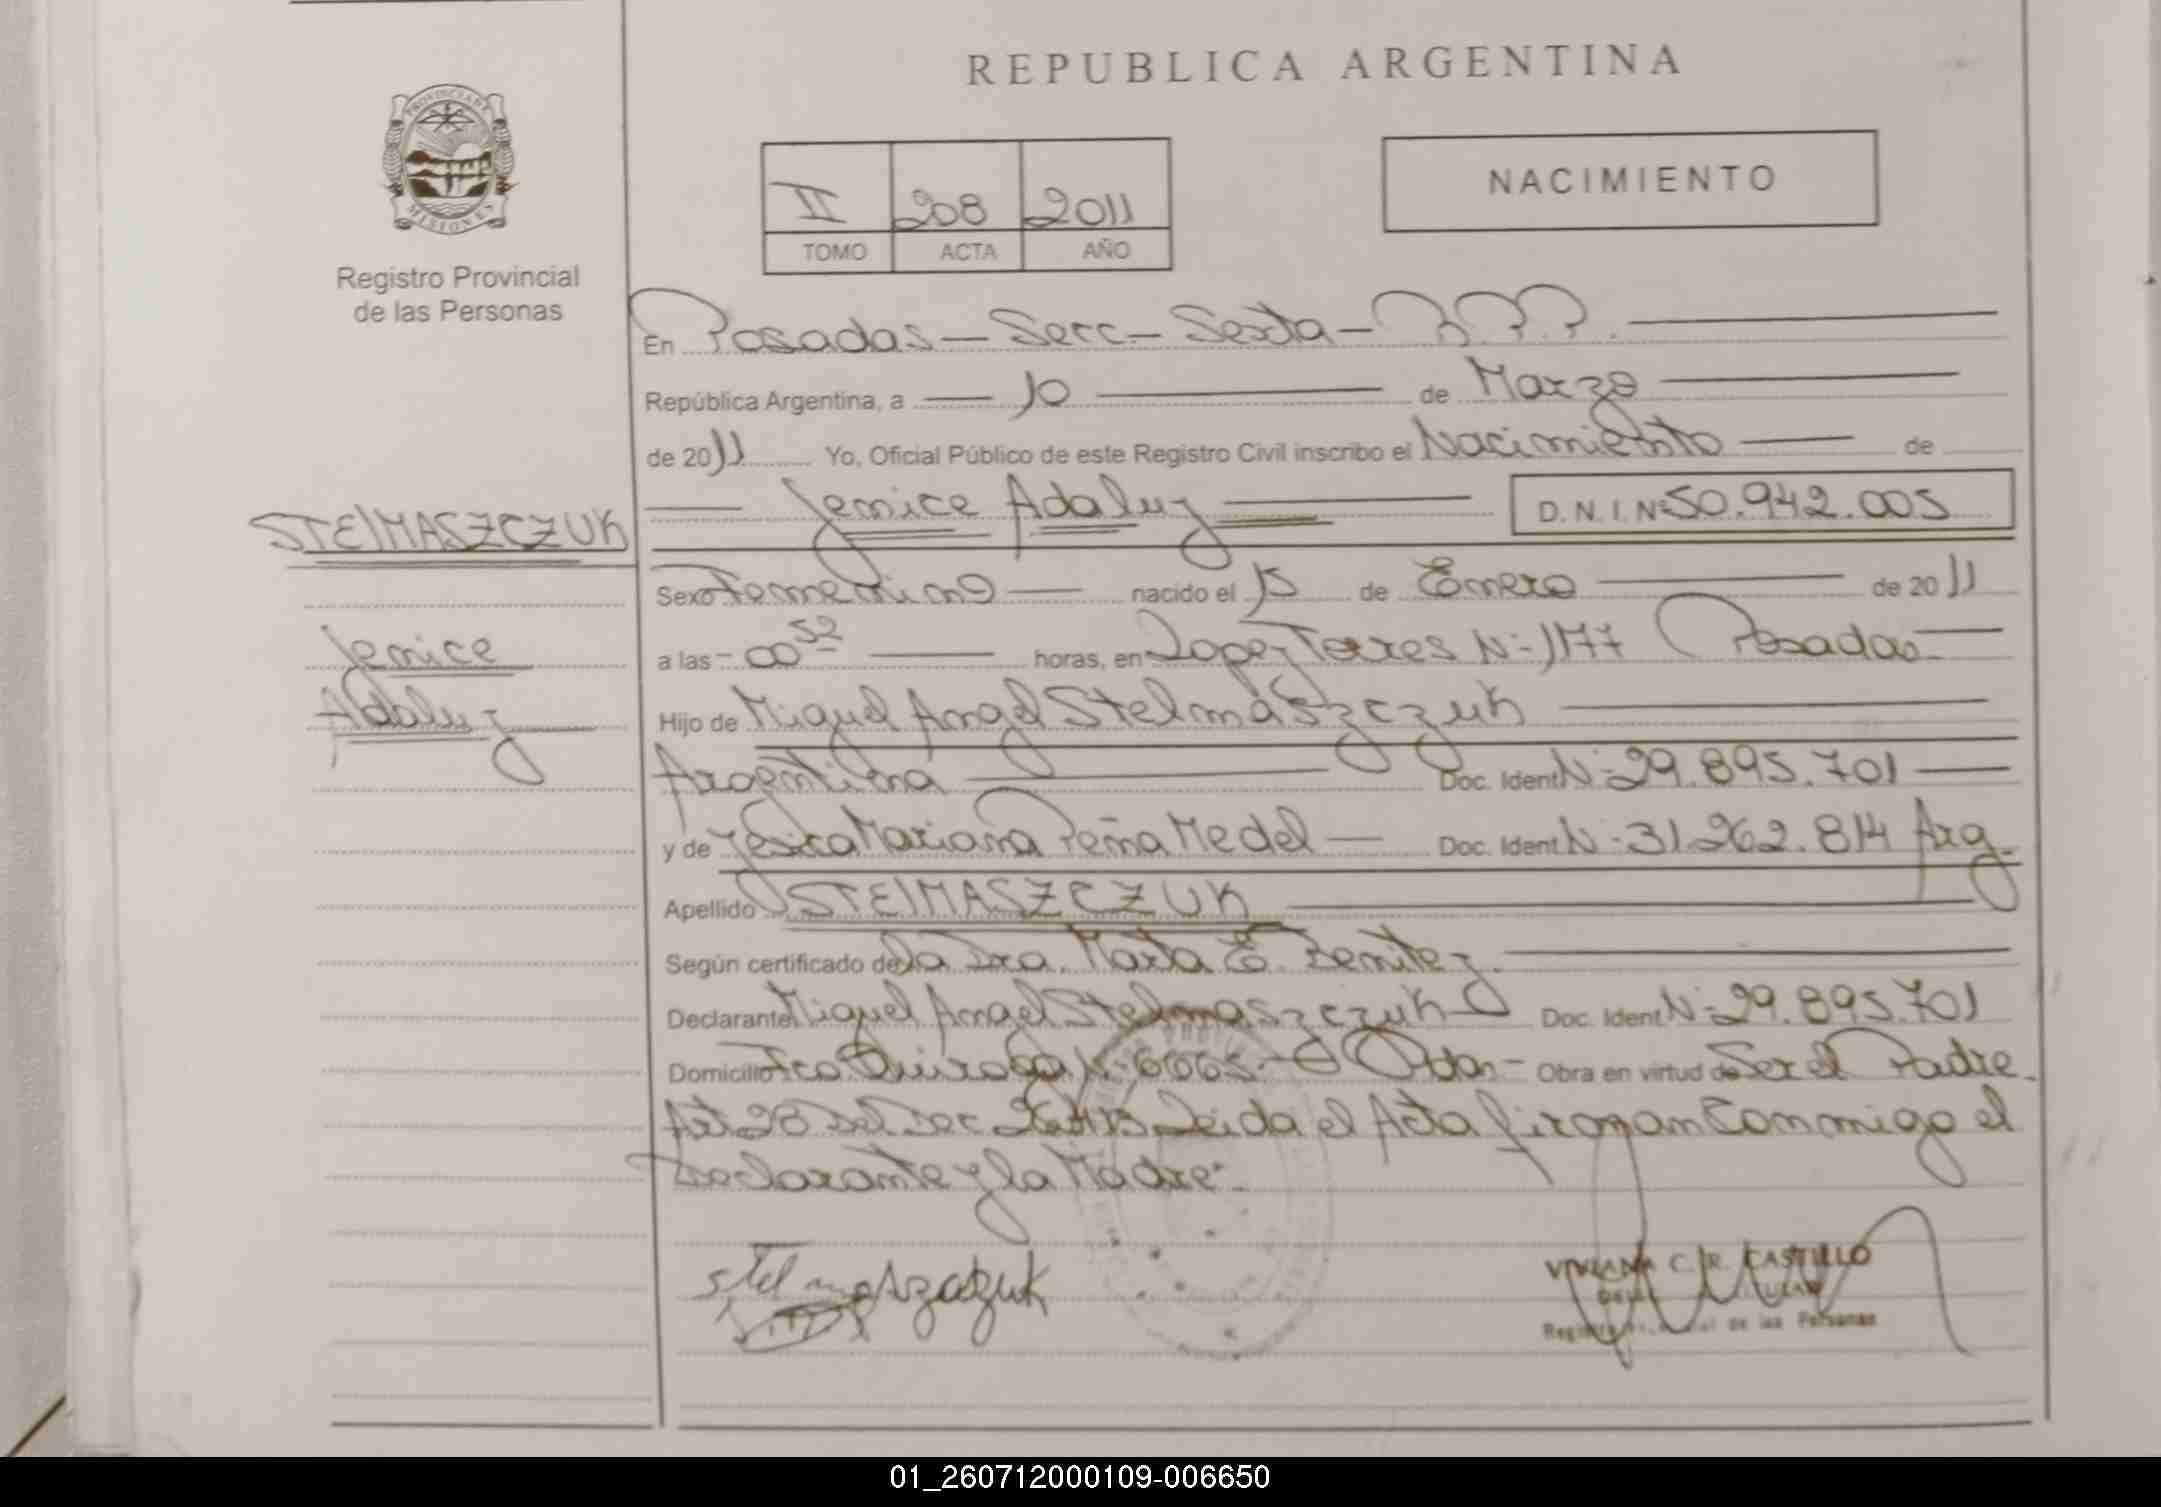 REPUBLICA ARGENTINA
PROVINCIA DE
MISIONES
Registro Provincial
de las Personas
II 208 2011
TOMO ACTA AÑO
NACIMIENTO
En Posadas - Secc - Sexta -
República Argentina, a 10 de Marzo
de 2011 Yo, Oficial Público de este Registro Civil inscribo el Nacimiento de
Jenice Adaluz D.N.I. Nº 50.942.005
STElMASZCZUK
Jenice
Adaluz
Sexo Femenino nacido el 15 de Enero de 2011
a las 00 52 horas, en Lopez Torres Nº 1177 Posadas
Hijo de Miguel Angel Stelmaszczuk
Argentina Doc. Ident Nº 29.895.701
y de Jesica Mariana Peña Medel Doc. Ident Nº 31.262.814 Arg
Apellido STElMASZCZUK
Según certificado de la Dra. Marta E. Benitez
Declarante Miguel Angel Stelmaszczuk Doc. Ident Nº 29.895.701
Domicilio Fco Quiroga Nº 6065 - Obra en virtud de Ser el Padre
Art 28 Del Dec Leida el Acta firman Conmigo el
Declarante y la Madre.
Stelmaszczuk
VIVIANA C. R. CASTILLO
Registro de las Personas
01_260712000109-006650